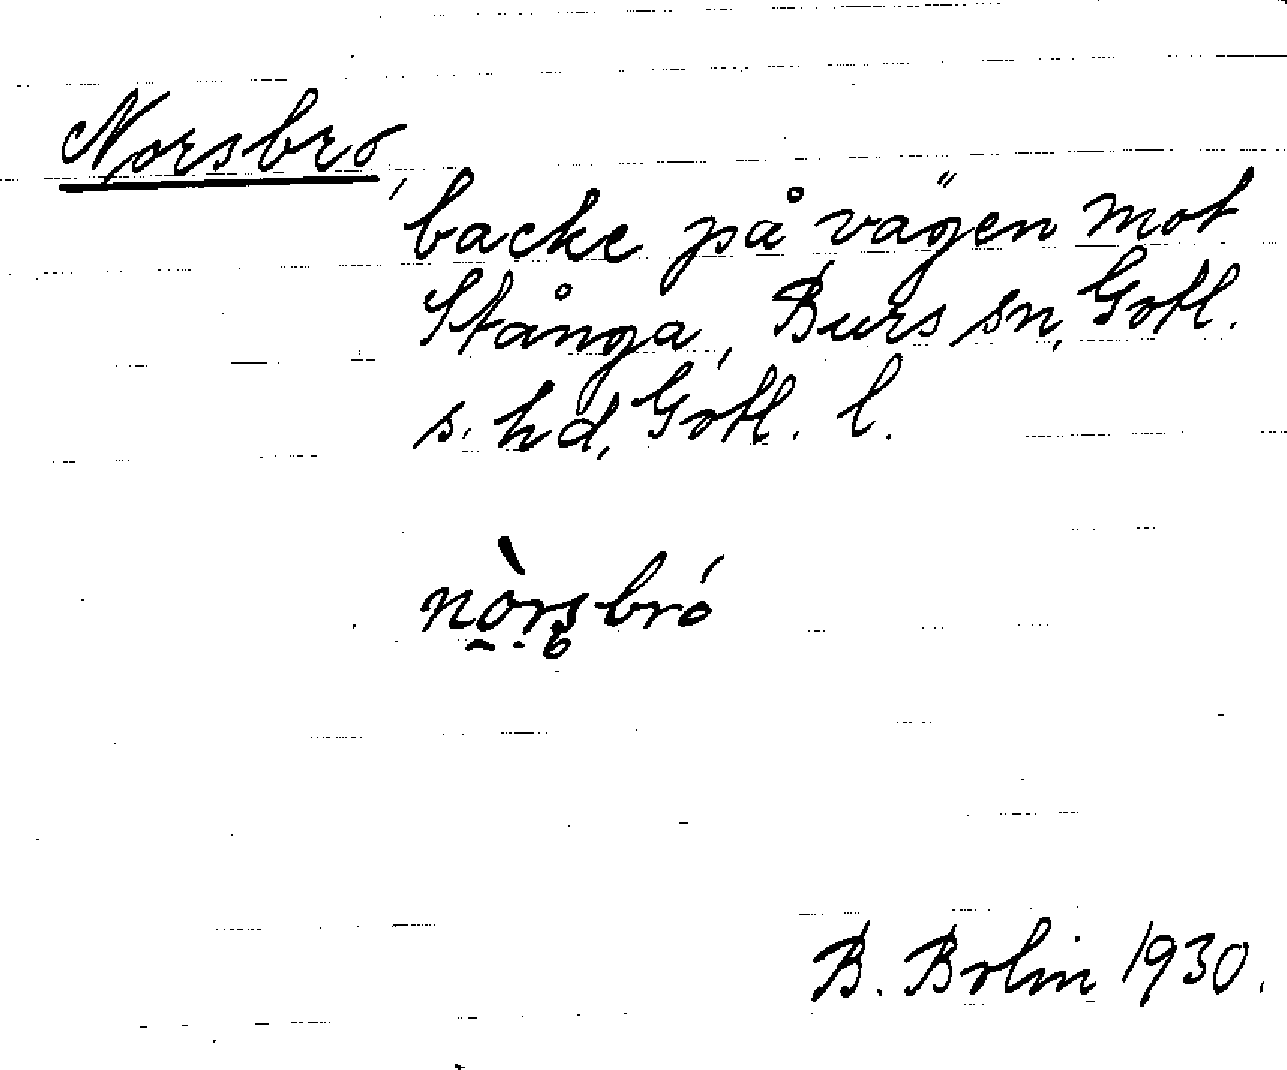 Norsbro,
backe på vägen mot
Stånga, Burs sn, Gotl.
s. hd, Gotl. l.
nòrsbró
B. Bolin 1930.